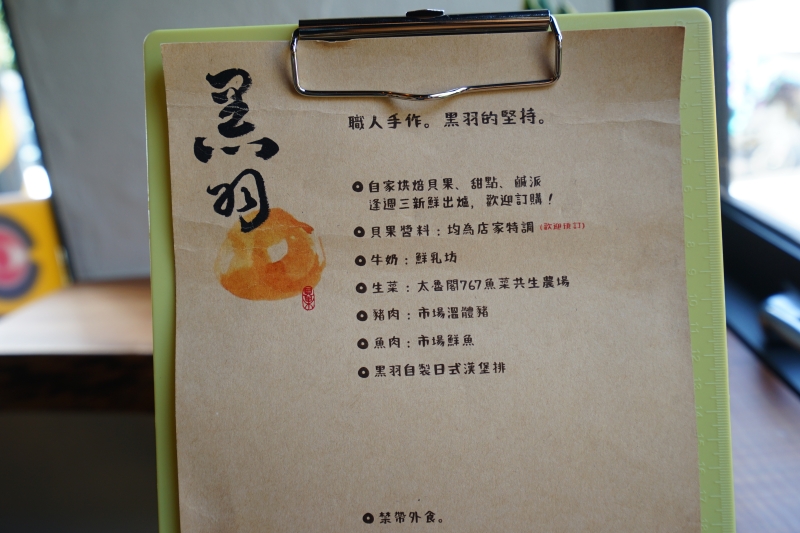 黑羽
職人手作。黑羽的堅持。
自家烘焙貝果、甜點、鹹派
逢週三新鮮出爐，歡迎訂購！
貝果醬料：均為店家特調(歡迎換訂)
牛奶：鮮乳坊
生菜：太魯閣767魚菜共生農場
豬肉：市場溫體豬
魚肉：市場鮮魚
黑羽自製日式漢堡排
禁帶外食。
貝果